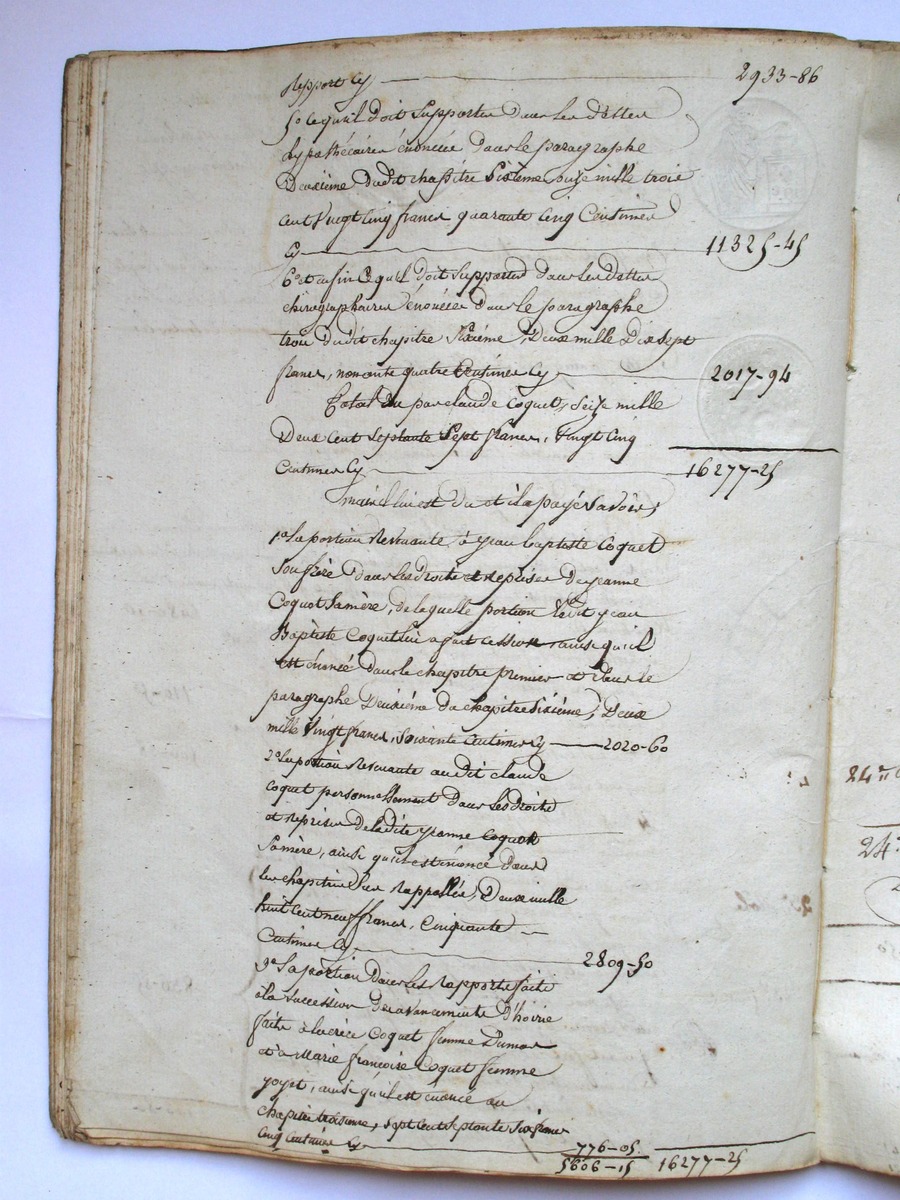 Report cy 2933-86
5o ce qu'il doit Supporter dans les dettes
hypothécaires énoncées dans le paragraphe
Deuxième dudit chapitre Sixième onze mille trois
cent Vingt Cinq francs quarante Cinq Centimes
Cy 11325-45
6o et enfin Ce qu'il doit Supporter dans les dettes
chirographaires énoncées dans le paragraphe
trois dudit chapitre Sixième, Deux mille Dix Sept
francs, nonante quatre Centimes Cy 2017-94
Total Du par claude Coquet, Seize mille
Deux cent Septante Sept francs, Vingt Cinq
Centimes Cy 16277-25
mais il lui est du et il a payé Savoir;
1o la portion Revenante à jean baptiste Coquet
Son frère Dans les droits et reprises De jeanne
Coquot Sa mère, de laquelle portion Ledit jean
Baptiste Coquet lui a fait cession ainsi qu'il
est énoncé dans le chapitre premier et dans le
paragraphe Deuxième du chapitre Sixième, Deux
mille Vingt francs, Soixante Centimes Cy 2020-60
2o la portion Revenante audit claude
Coquet personnellement Dans les Droits
et reprises de ladite jeanne Coquot
Sa mère, ainsi qu'il est énoncé dans
les chapitres Sus Rappellés, Deux mille
huit cent neuf francs, Cinquante
Centimes Cy 2809-50
3o Sa portion Dans les Rapports faits
à la Succession Des avancements D'hoirie
faits à lucrèce Coquet femme Dumas
et à Marie françoise Coquet femme
goyet, ainsi qu'il est énoncé au
chapitre troisième, Sept cent Septante Six francs
Cinq Centimes Cy 776-05
5606-15 16277-25
24
24